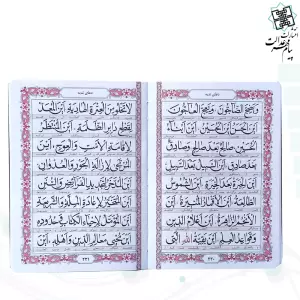 دعای ندبه
وَيَضِجَّ الضّاجُّونَ، وَيَعِجَّ الْعاجُّونَ
اَيْنَ الْحَسَنُ اَيْنَ الْحُسَيْنُ، اَيْنَ اَبْناءُ
الْحُسَيْنِ، صالِحٌ بَعْدَ صالِحٍ وَصادِقٌ
بَعْدَ صادِقٍ، اَيْنَ السَّبيلُ بَعْدَ السَّبيلِ
اَيْنَ الْخِيَرَةُ بَعْدَ الْخِيَرَةِ، اَيْنَ الشُّمُوسُ
الطّالِعَةُ، اَيْنَ الْاَقْمارُ الْمُنيرَةُ، اَيْنَ
الْاَنْجُمُ الزّاهِرَةُ، اَيْنَ اَعْلامُ الدّينِ
وَقَواعِدُ الْعِلْمِ، اَيْنَ بَقِيَّةُ اللهِ الَّتي
۲۲۰
دعای ندبه
لا تَخْلُو مِنَ الْعِتْرَةِ الْهادِيَةِ، اَيْنَ الْمُعَدُّ
لِقَطْعِ دابِرِ الظَّلَمَةِ، اَيْنَ الْمُنْتَظَرُ
لِاِقامَةِ الْاَمْتِ وَالْعِوَجِ، اَيْنَ
الْمُرْتَجى لِاِزالَةِ الْجَوْرِ وَالْعُدْوانِ
اَيْنَ الْمُدَّخَرُ لِتَجْديدِ الْفَرائِضِ وَالسُّنَنِ
اَيْنَ الْمُتَخَيَّرُ لِاِعادَةِ الْمِلَّةِ وَالشَّريعَةِ
اَيْنَ الْمُؤَمَّلُ لِاِحْياءِ الْكِتابِ وَحُدُودِهِ
اَيْنَ مُحْيي مَعالِمِ الدّينِ وَاَهْلِهِ، اَيْنَ
۲۲۱